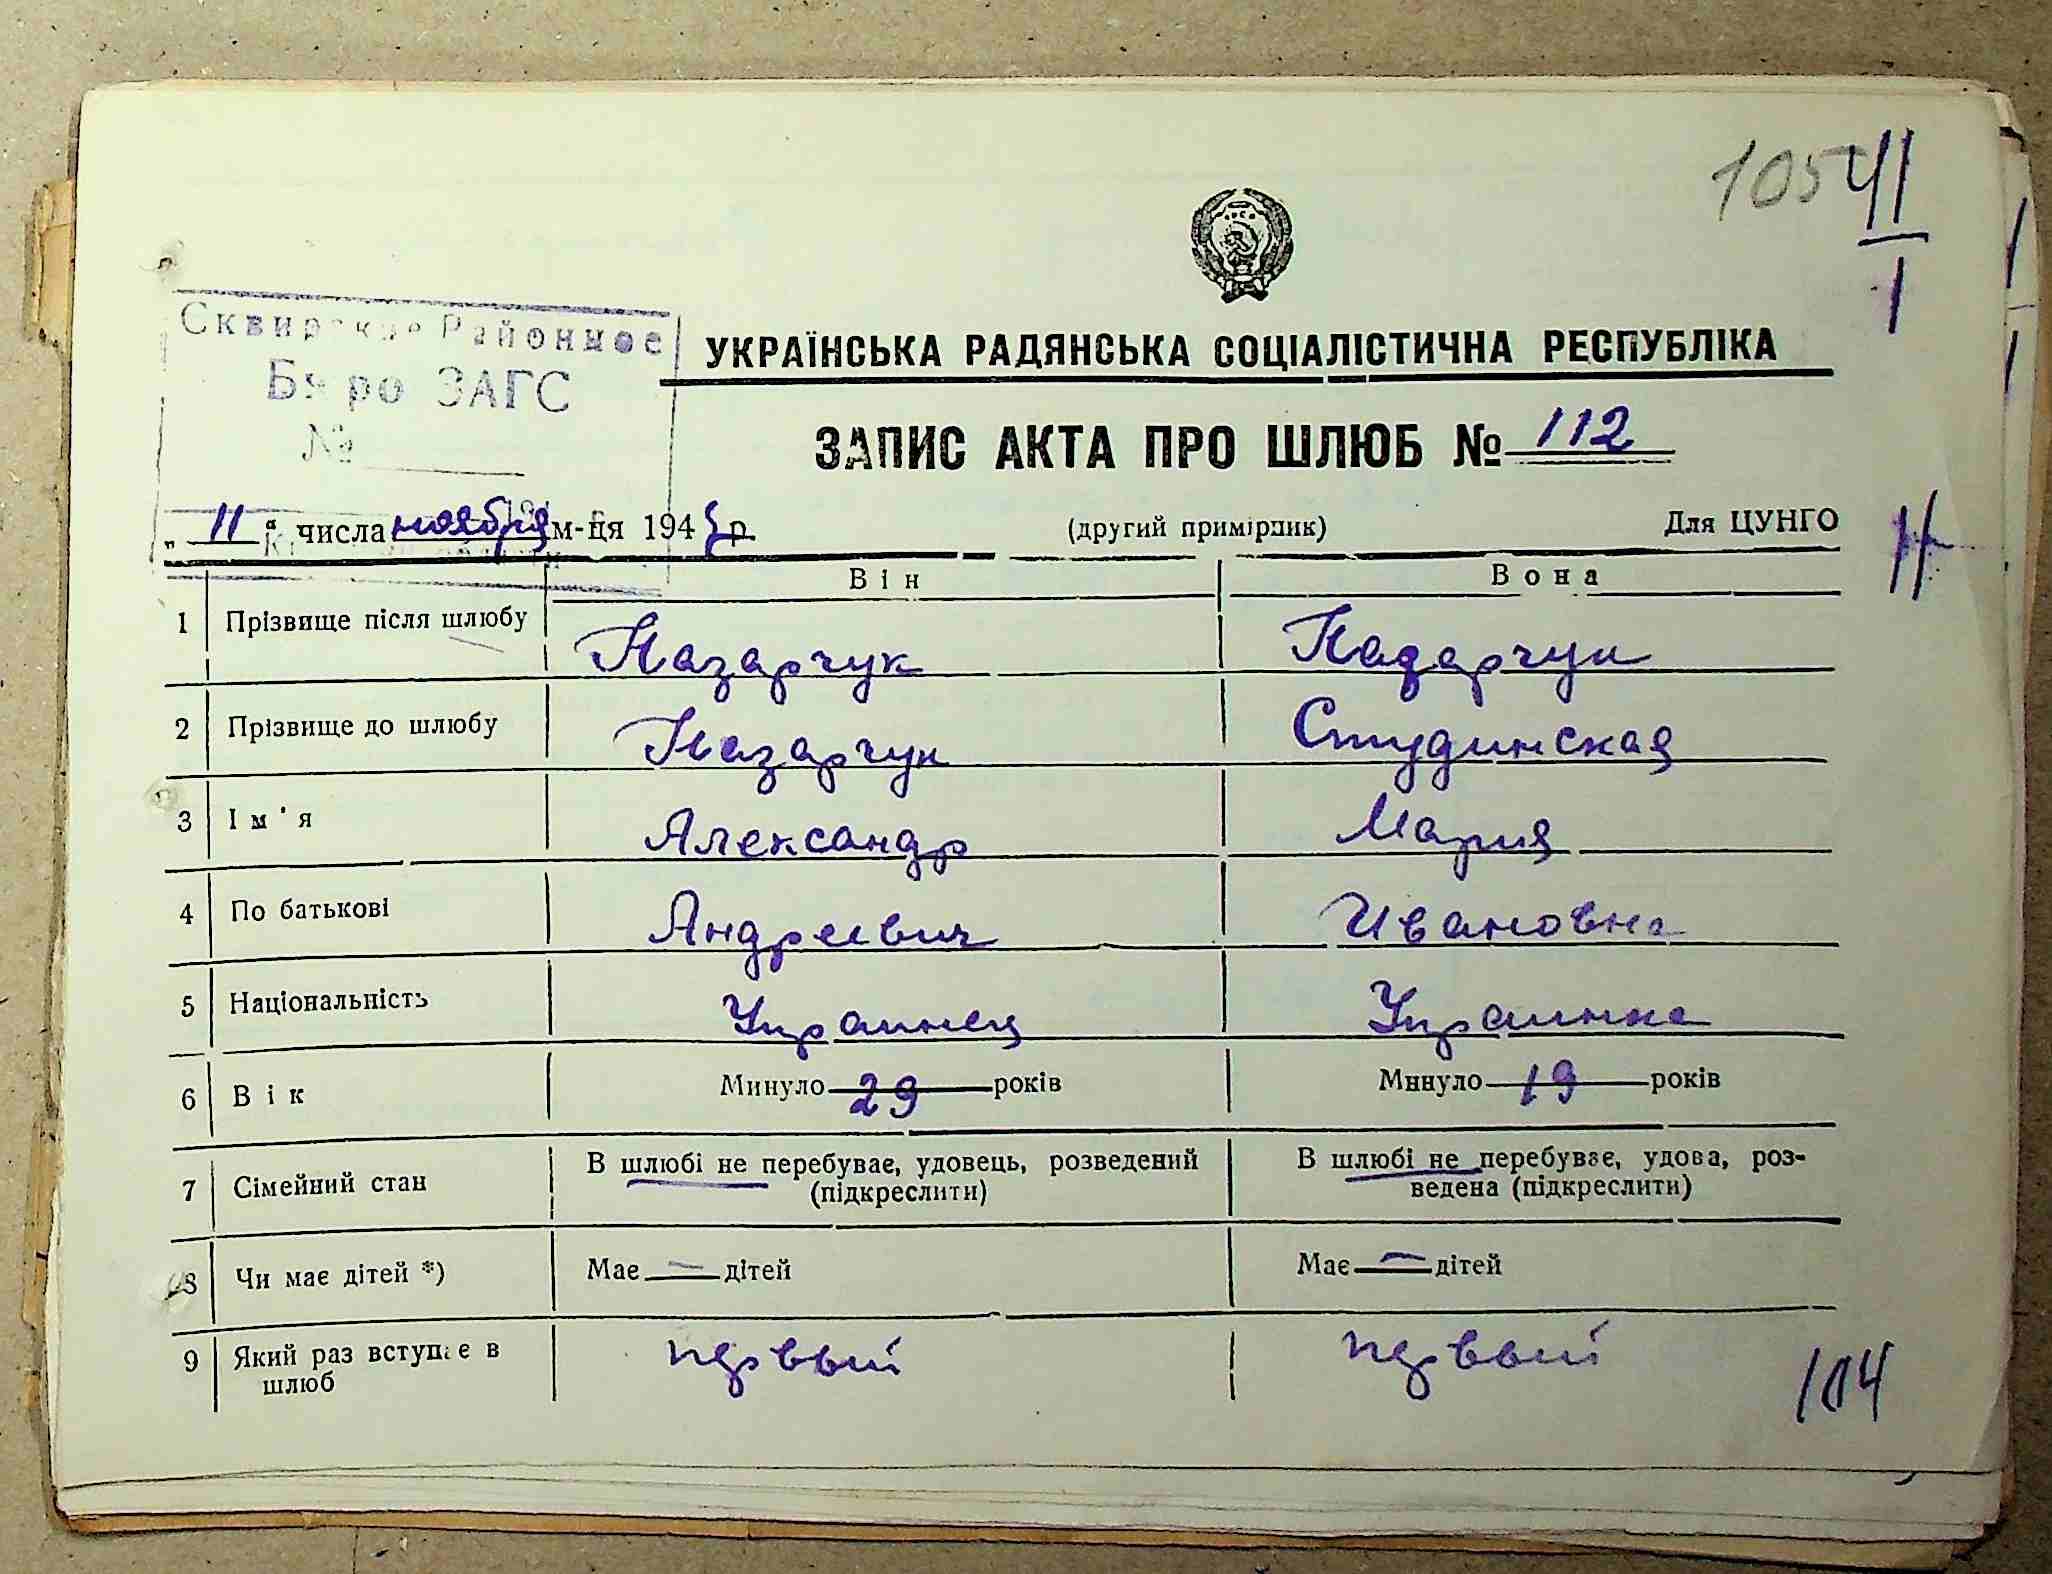 105 41
1
Сквирское Районное
Бюро ЗАГС
№
УКРАЇНСЬКА РАДЯНСЬКА СОЦІАЛІСТИЧНА РЕСПУБЛІКА
ЗАПИС АКТА ПРО ШЛЮБ № 112
„ 11 “ числа ноября м-ця 1945 р. (другий примірник) Для ЦУНГО
Він Вона
1 Прізвище після шлюбу Назарчук Назарчук
2 Прізвище до шлюбу Назарчук Студинская
3 Ім'я Александр Мария
4 По батькові Андреевич Ивановна
5 Національність Украинец Украинка
6 Вік Минуло 29 років Минуло 19 років
7 Сімейний стан В шлюбі не перебуває, удовець, розведений В шлюбі не перебуває, удова, роз-
(підкреслити) ведена (підкреслити)
8 Чи має дітей *) Має — дітей Має — дітей
9 Який раз вступає в первый первый
шлюб
104